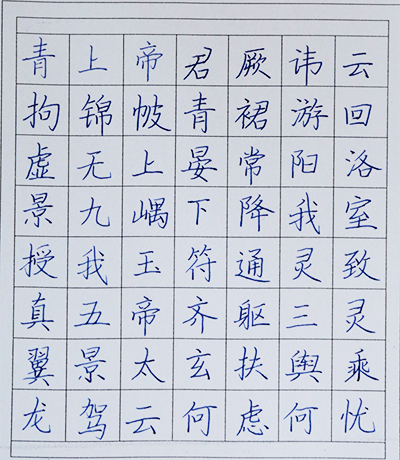 青上帝君厥讳云
拘锦帔青裙游回
虚无上晏常阳洛
景九嵎下降我室
授我玉符通灵致
真五帝齐躯三灵
翼景太玄扶舆乘
龙驾云何虑何忧